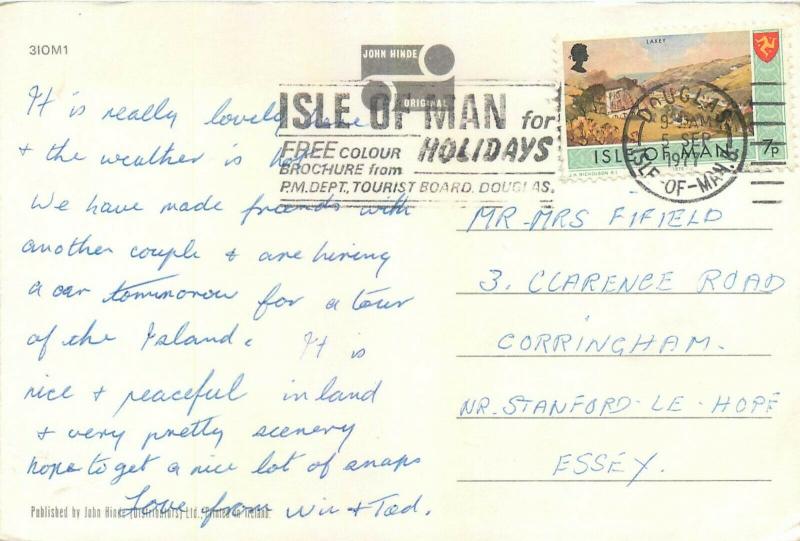 3IOM1
JOHN HINDE
ORIGINAL
ISLE OF MAN for
FREE COLOUR HOLIDAYS
BROCHURE from
P.M. DEPT, TOURIST BOARD, DOUGLAS.
LAXEY
ISLE OF MAN 7P
J.H. NICHOLSON R.I.
DOUGLAS
5 SEP
1977
ISLE-OF-MAN
It is really lovely here
& the weather is hot
We have made friends with
another couple & are hiring
a car tommorow for a tour
of the Island. It is
nice & peaceful inland
& very pretty scenery
hope to get a nice lot of snaps
Love from Win & Tod.
MR-MRS FIFIELD
3. CLARENCE ROAD
CORRINGHAM.
NR. STANFORD-LE-HOPE
ESSEY.
Published by John Hinde (Distributors) Ltd., Printed in Ireland.